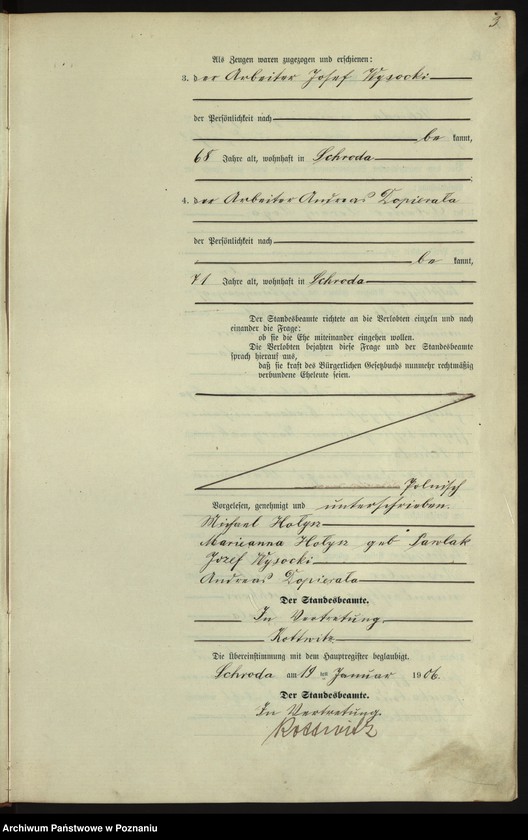 3.
Als Zeugen waren zugezogen und erschienen:
3. der Arbeiter Josef Wysocki
der Persönlichkeit nach
be kannt,
68 Jahre alt, wohnhaft in Schroda
4. der Arbeiter Andreas Dopierała
der Persönlichkeit nach
be kannt,
71 Jahre alt, wohnhaft in Schroda
Der Standesbeamte richtete an die Verlobten einzeln und nach
einander die Frage:
ob sie die Ehe miteinander eingehen wollen.
Die Verlobten bejahten diese Frage und der Standesbeamte
sprach hierauf aus,
daß sie kraft des Bürgerlichen Gesetzbuchs nunmehr rechtmäßig
verbundene Eheleute seien.
Polnisch
Vorgelesen, genehmigt und unterschrieben.
Michael Hołyn
Marieanna Hołyn geb Pawlak
Jozef Wysocki
Andreas Dopierała
Der Standesbeamte.
In Vertretung.
Kottwitz
Die Übereinstimmung mit dem Hauptregister beglaubigt.
Schroda am 19 ten Januar 1906.
Der Standesbeamte.
In Vertretung.
Kottwitz
Archiwum Państwowe w Poznaniu